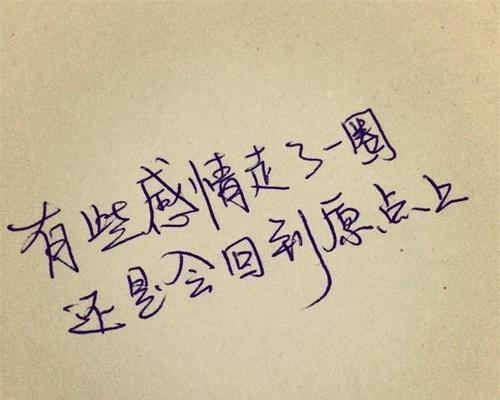 有些感情走了一圈
还是会回到原点上